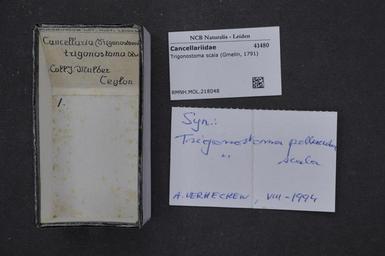 Cancellaria (Trigonostoma)
trigonostoma
Coll. J. Mulder
Ceylon
1.
NCB Naturalis - Leiden
Cancellariidae 41480
Trigonostoma scala (Gmelin, 1791)
RMNH.MOL.218048
Syn.:
Trigonostoma pellucida
" scala
A. VERHECKEN, VIII-1994